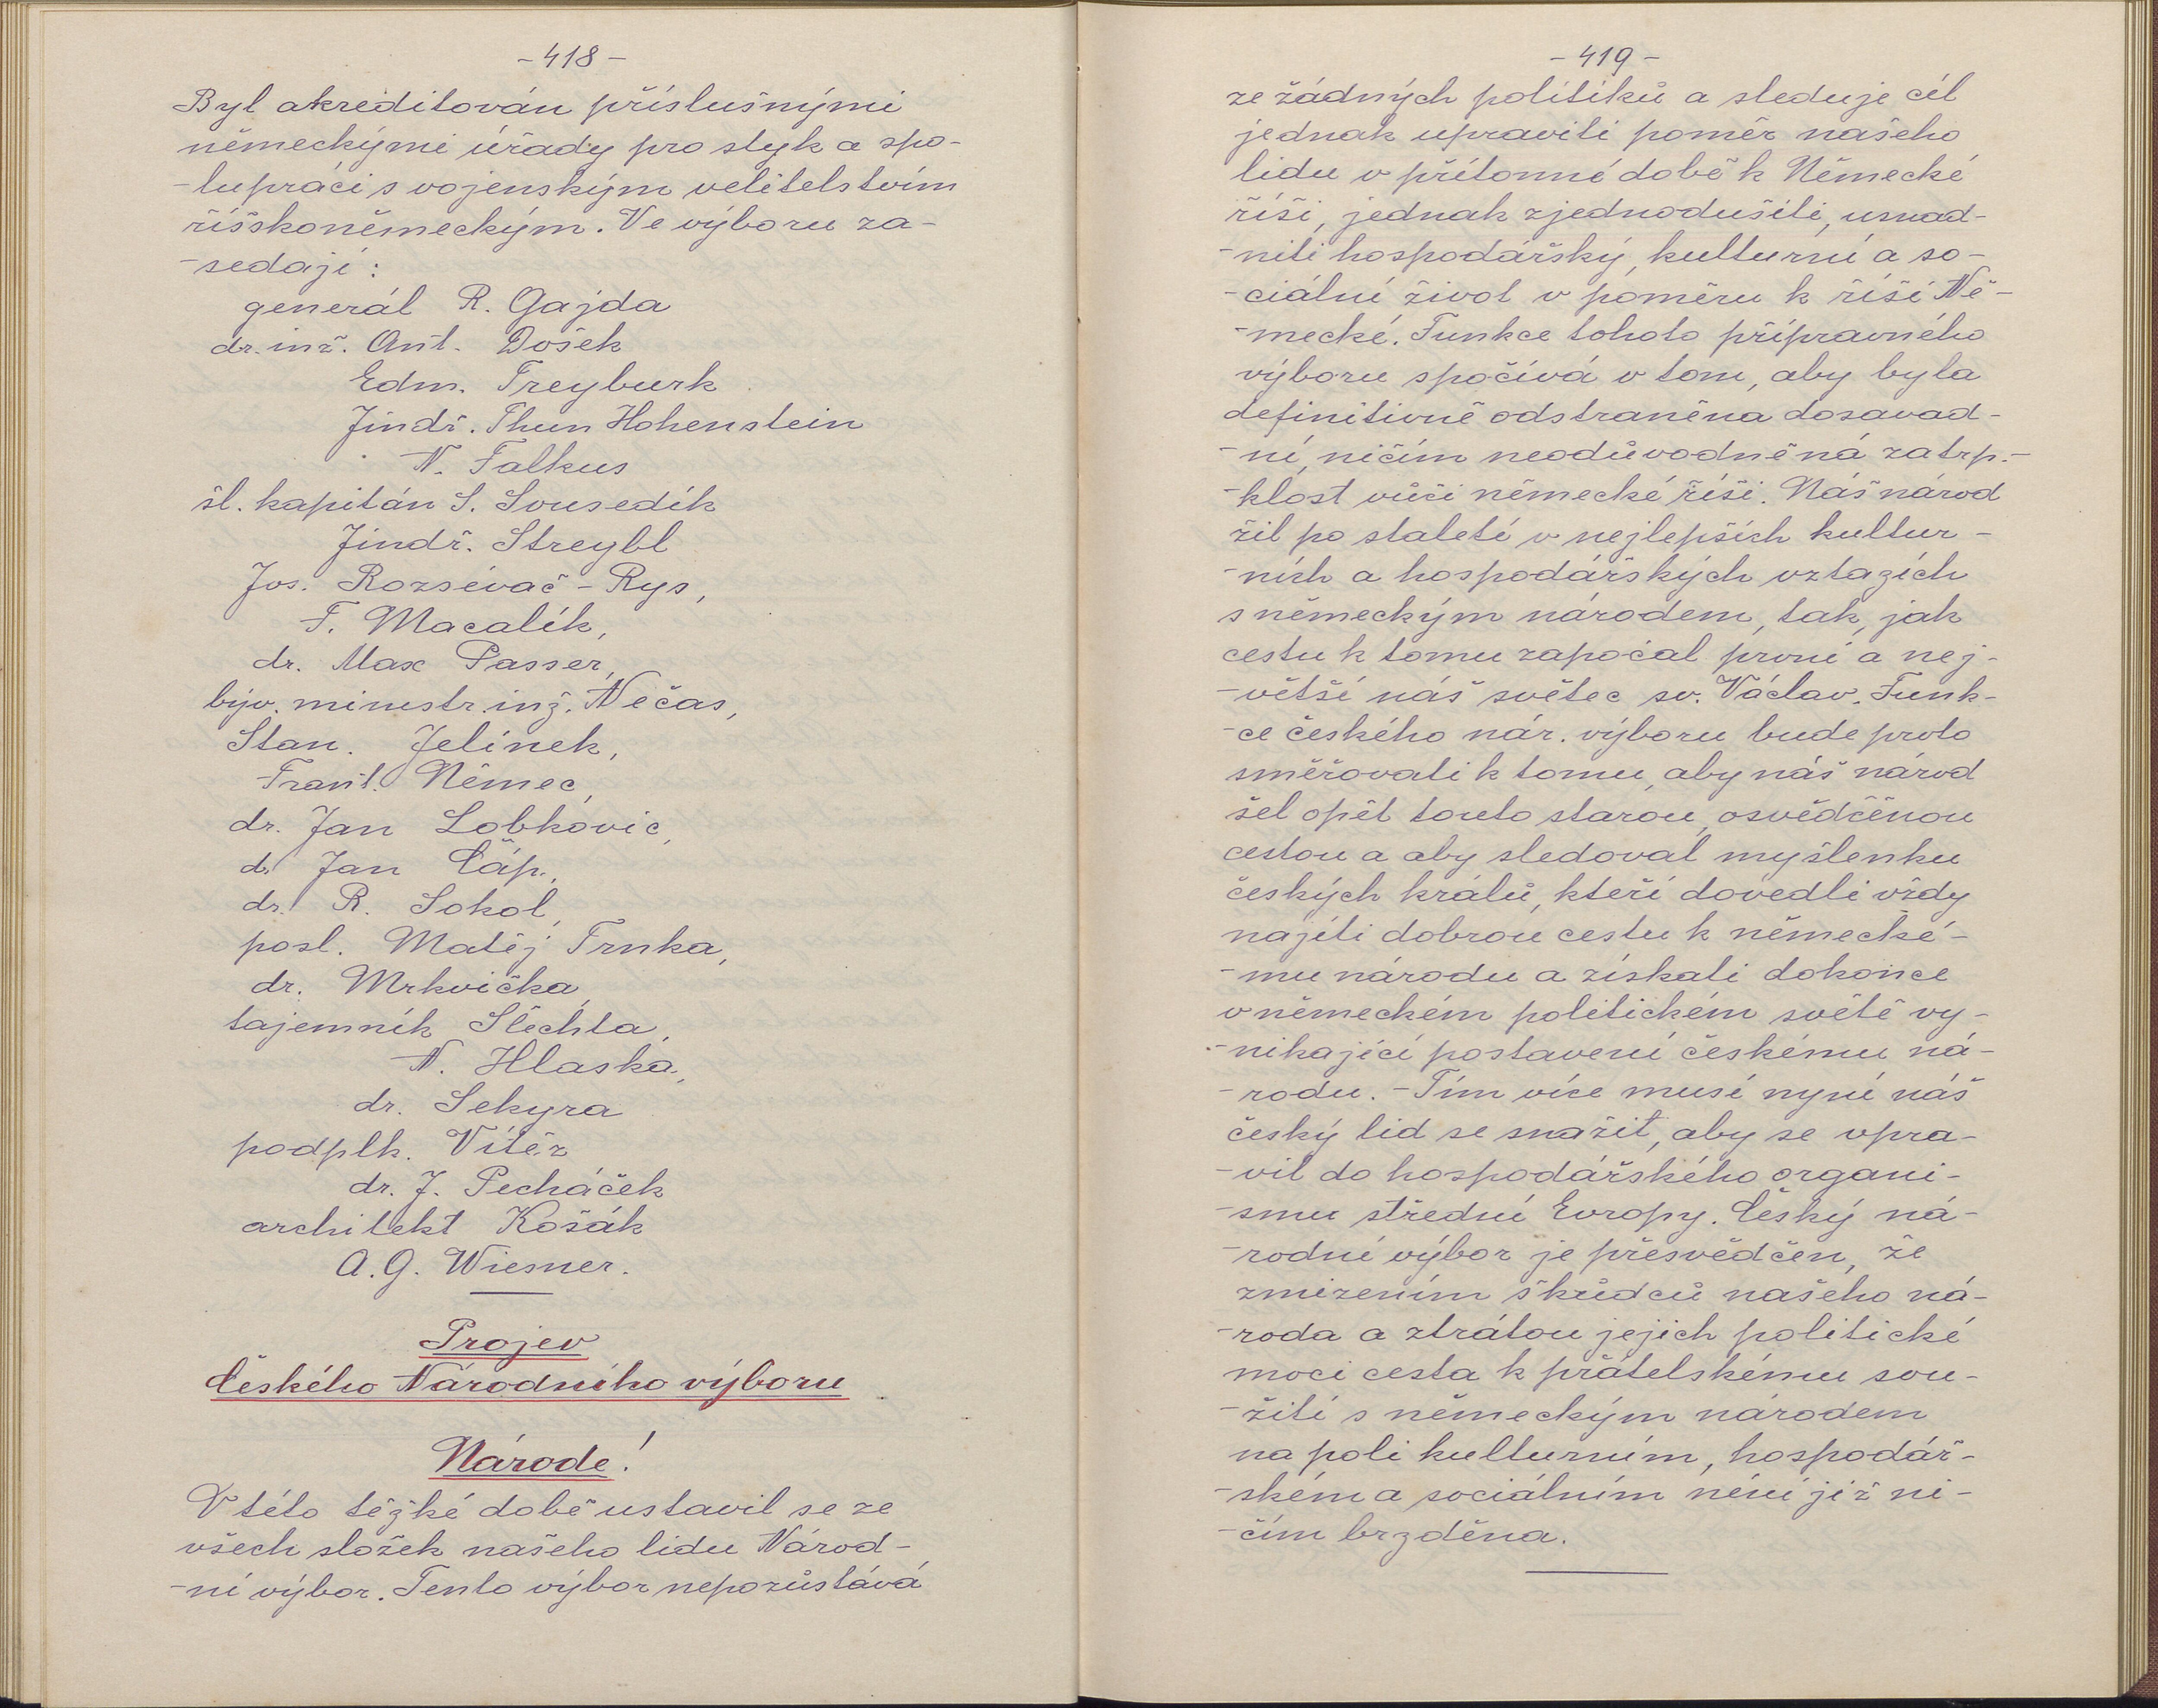 - 418 -
Byl akreditován příslušnými
německými úřady pro styk a spo-
-lupráci s vojenským velitelstvím
říšskoněmeckým. Ve výboru za-
-sedají:
generál R. Gajda
dr. inž. Ant. Došek
Edm. Freyburk
Jindř. Thun Hohenstein
N. Falkus
šl. kapitán S. Sousedík
Jindř. Streybl
Jos. Rozsévač - Rys,
F. Macalík,
dr. Max Passer,
býv. ministr inž. Nečas,
Stan. Jelínek,
Frant. Němec,
dr. Jan Lobkovic,
d. Jan Čáp,
dr. R. Sokol,
posl. Matěj Trnka,
dr. Mrkvička,
tajemník Šlechta,
N. Hlaska,
dr. Sekyra
podplk. Vítěz
dr. J. Pecháček
architekt Košák
A. G. Wiesner.
Projev
Českého Národního výboru
Národe!
V této těžké době ustavil se ze
všech složek našeho lidu Národ-
-ní výbor. Tento výbor nepozůstává
- 419 -
ze žádných politiků a sleduje cíl
jednak upraviti poměr našeho
lidu v přítomné době k Německé
říši, jednak zjednodušiti, usnad-
-niti hospodářský, kulturní a so-
-ciální život v poměru k říši Ně-
-mecké. Funkce tohoto přípravného
výboru spočívá v tom, aby byla
definitivně odstraněna dosavad-
-ní, ničím neodůvodněná zatrp.-
-klost vůči německé říši. Náš národ
žil po staletí v nejlepších kultur-
-ních a hospodářských vztazích
s německým národem, tak, jak
cestu k tomu započal první a nej-
-větší náš světec sv. Václav. Funk-
-ce českého nár. výboru bude proto
směřovati k tomu, aby náš národ
šel opět touto starou, osvědčěnou
cestou a aby sledoval myšlenku
českých králů, kteří dovedli vždy
najíti dobrou cestu k německé-
-mu národu a získali dokonce
v německém politickém světě vy-
-nikající postavení českému ná-
-rodu. - Tím více musí nyní náš
český lid se snažit, aby se vpra-
-vil do hospodářského organi-
-smu střední Evropy. Český ná-
-rodní výbor je přesvědčen, že
zmizením škůdců našeho ná-
-roda a ztrátou jejich politické
moci cesta k přátelskému sou-
-žití s německým národem
na poli kulturním, hospodář-
-ském a sociálním není již ni-
-čím brzděna.